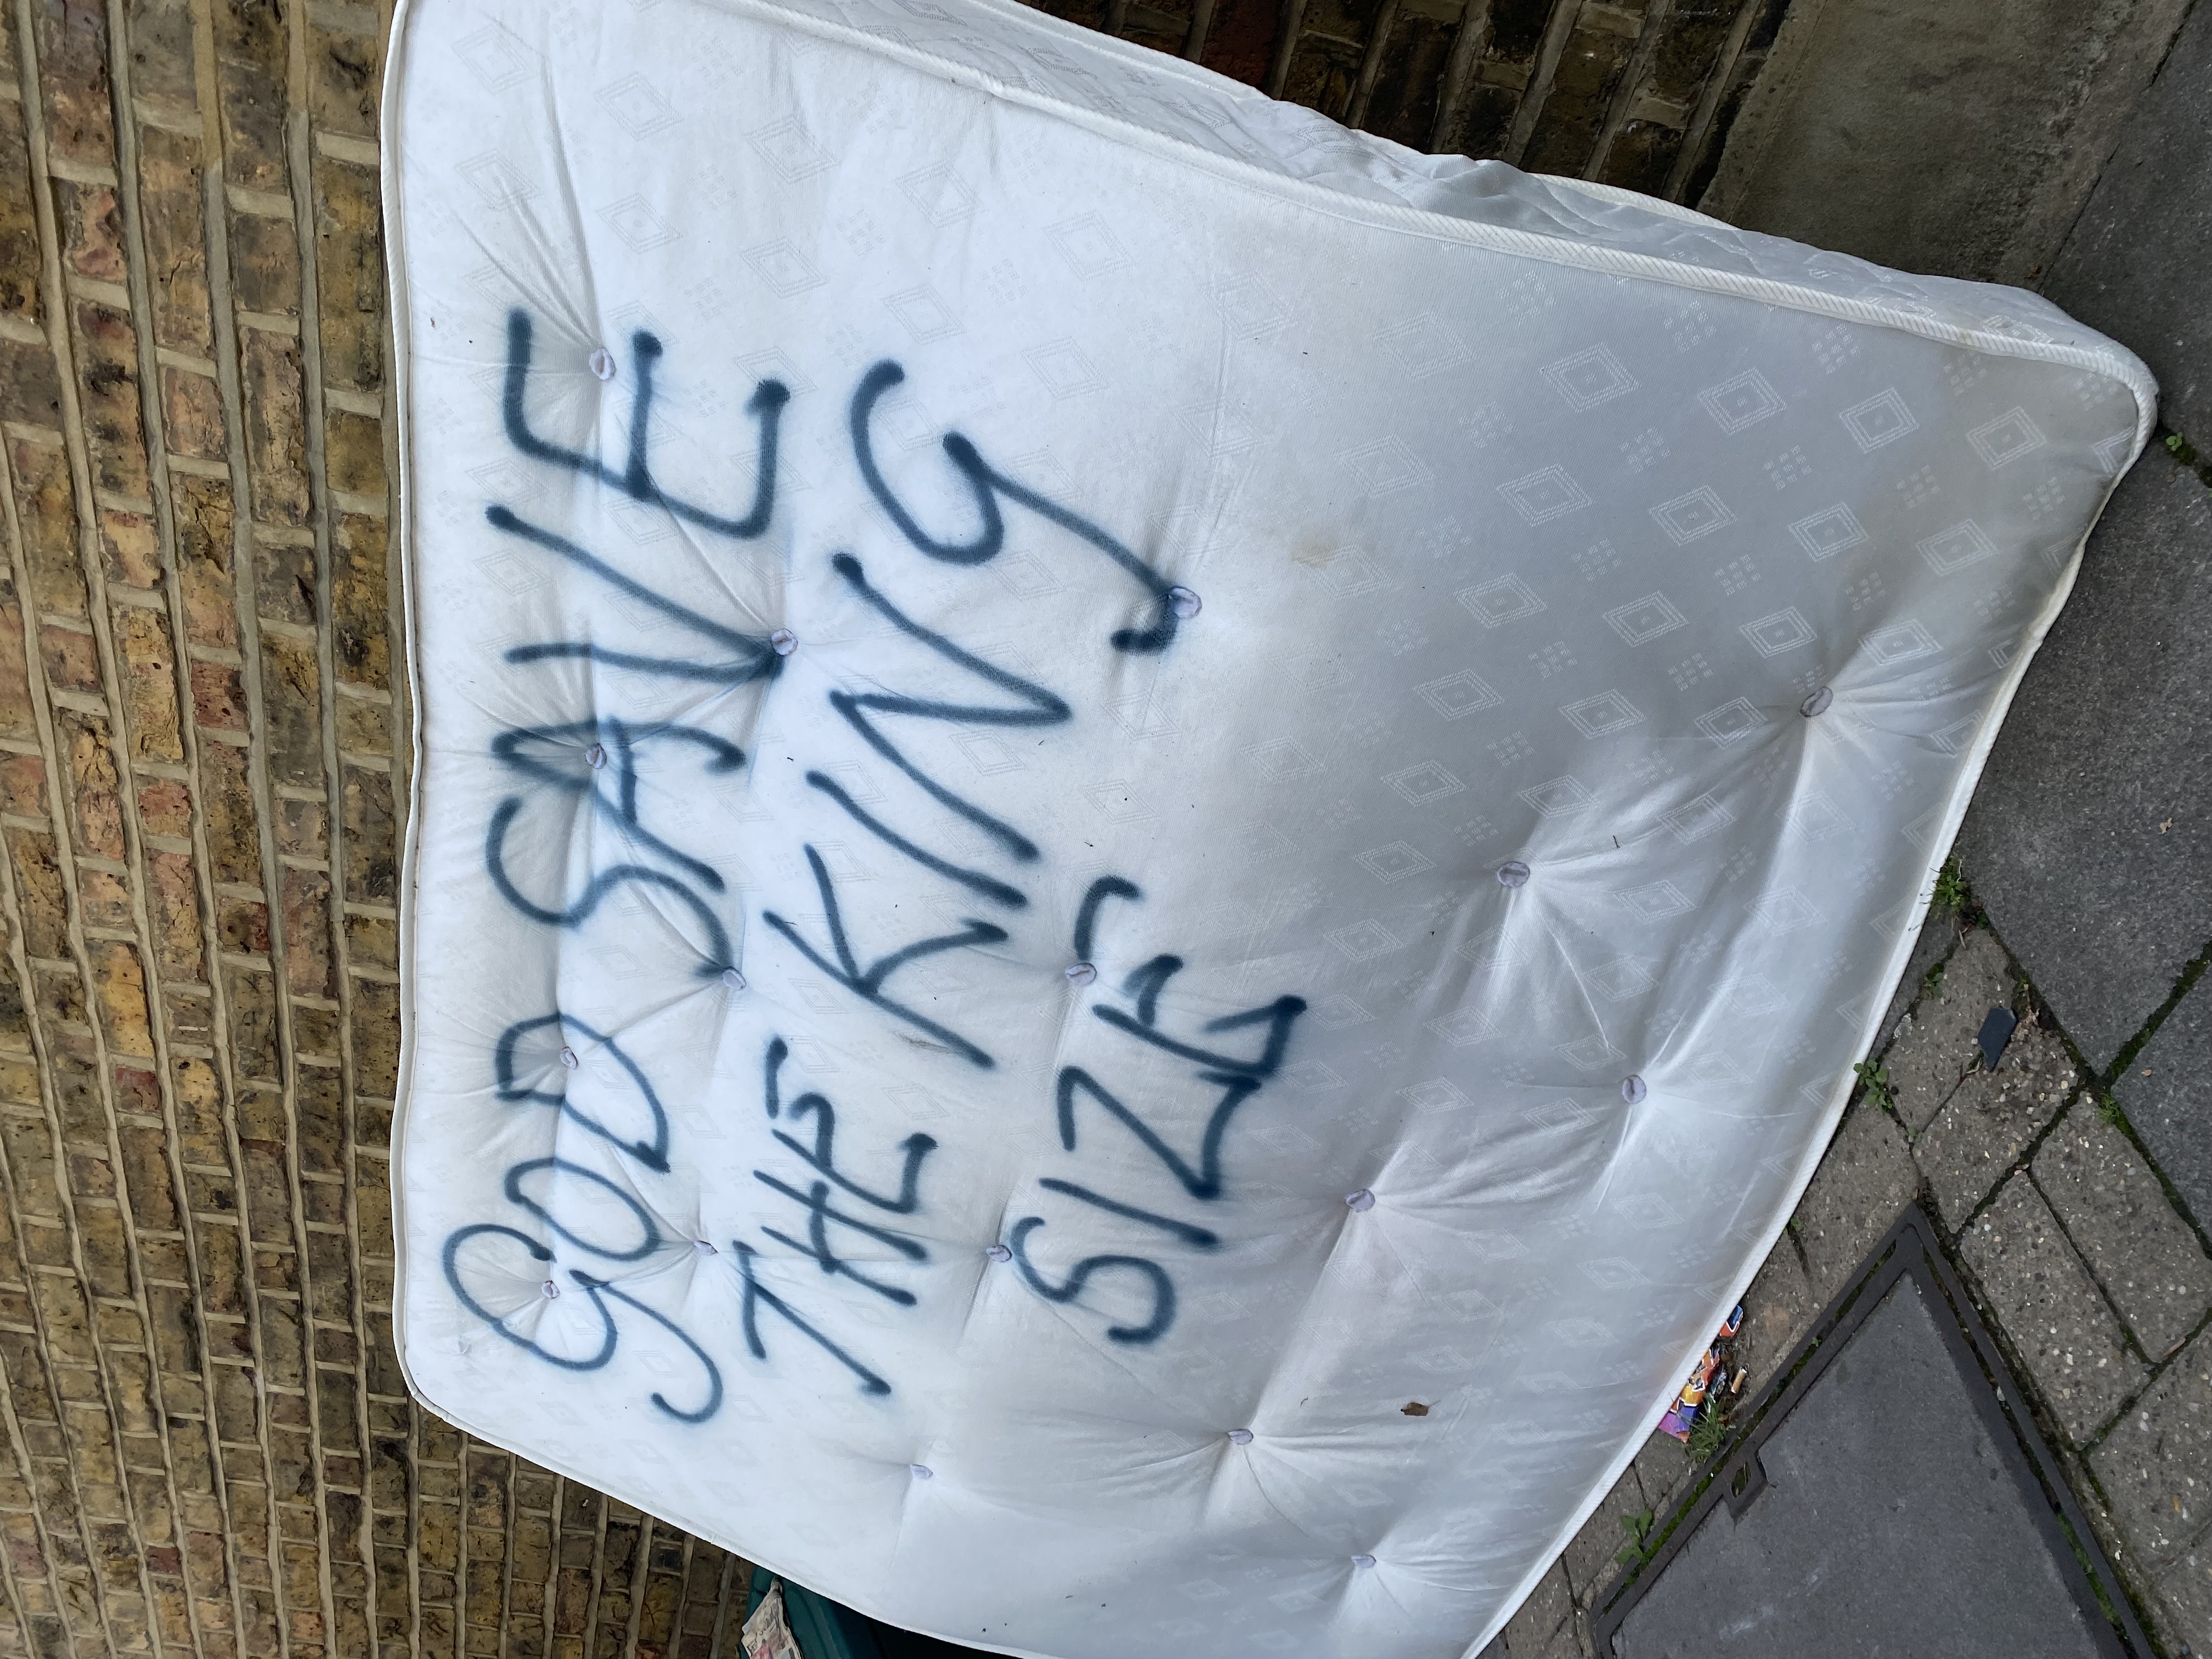 GOD SAVE
THE KING
SIZE